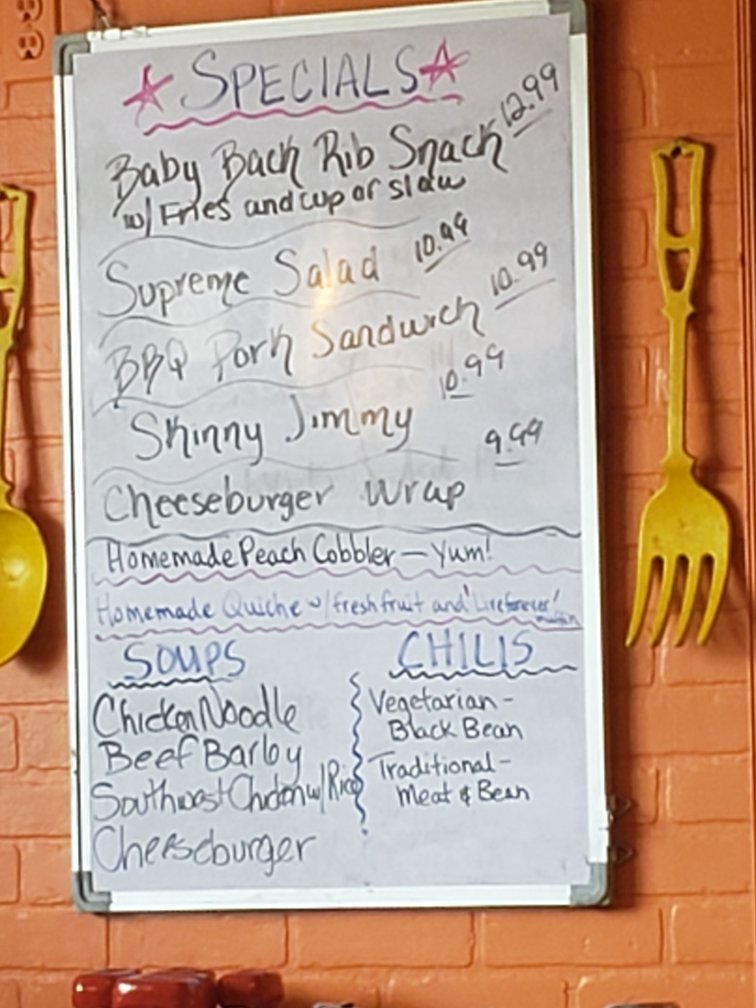 SPECIALS
Baby Back Rib Snack 12.99
w/ Fries and cup of slaw
Supreme Salad 10.99
BBQ Pork Sandwich 10.99
Skinny Jimmy 10.99
Cheeseburger Wrap 9.99
Homemade Peach Cobbler — Yum!
Homemade Quiche w/ fresh fruit and 'Live forever' muffin
SOUPS
Chicken Noodle
Beef Barley
Southwest Chicken w/ Rice
Cheeseburger
CHILIS
Vegetarian -
Black Bean
Traditional -
Meat & Bean